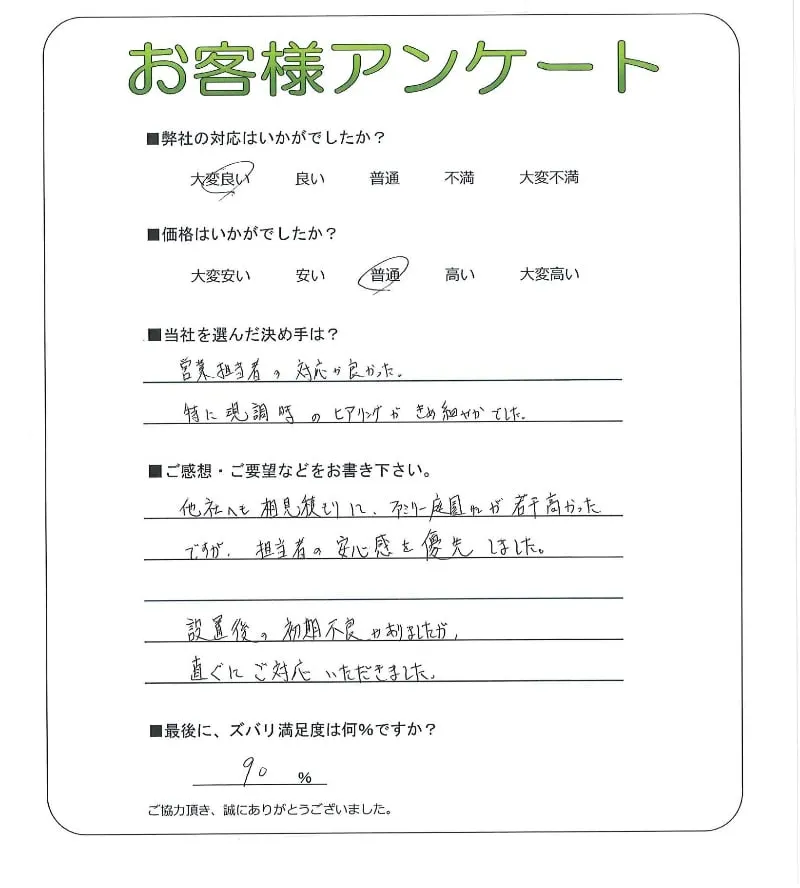 お客様アンケート
■弊社の対応はいかがでしたか？
大変良い 良い 普通 不満 大変不満
■価格はいかがでしたか？
大変安い 安い 普通 高い 大変高い
■当社を選んだ決め手は？
営業担当者の対応が良かった。
特に現調時のヒアリングがきめ細やかでした。
■ご感想・ご要望などをお書き下さい。
他社へも相見積もりして、ファミリー庭園さんが若干高かった
ですが、担当者の安心感を優先しました。
設置後の初期不良がありましたが、
直ぐにご対応いただきました。
■最後に、ズバリ満足度は何％ですか？
90 %
ご協力頂き、誠にありがとうございました。